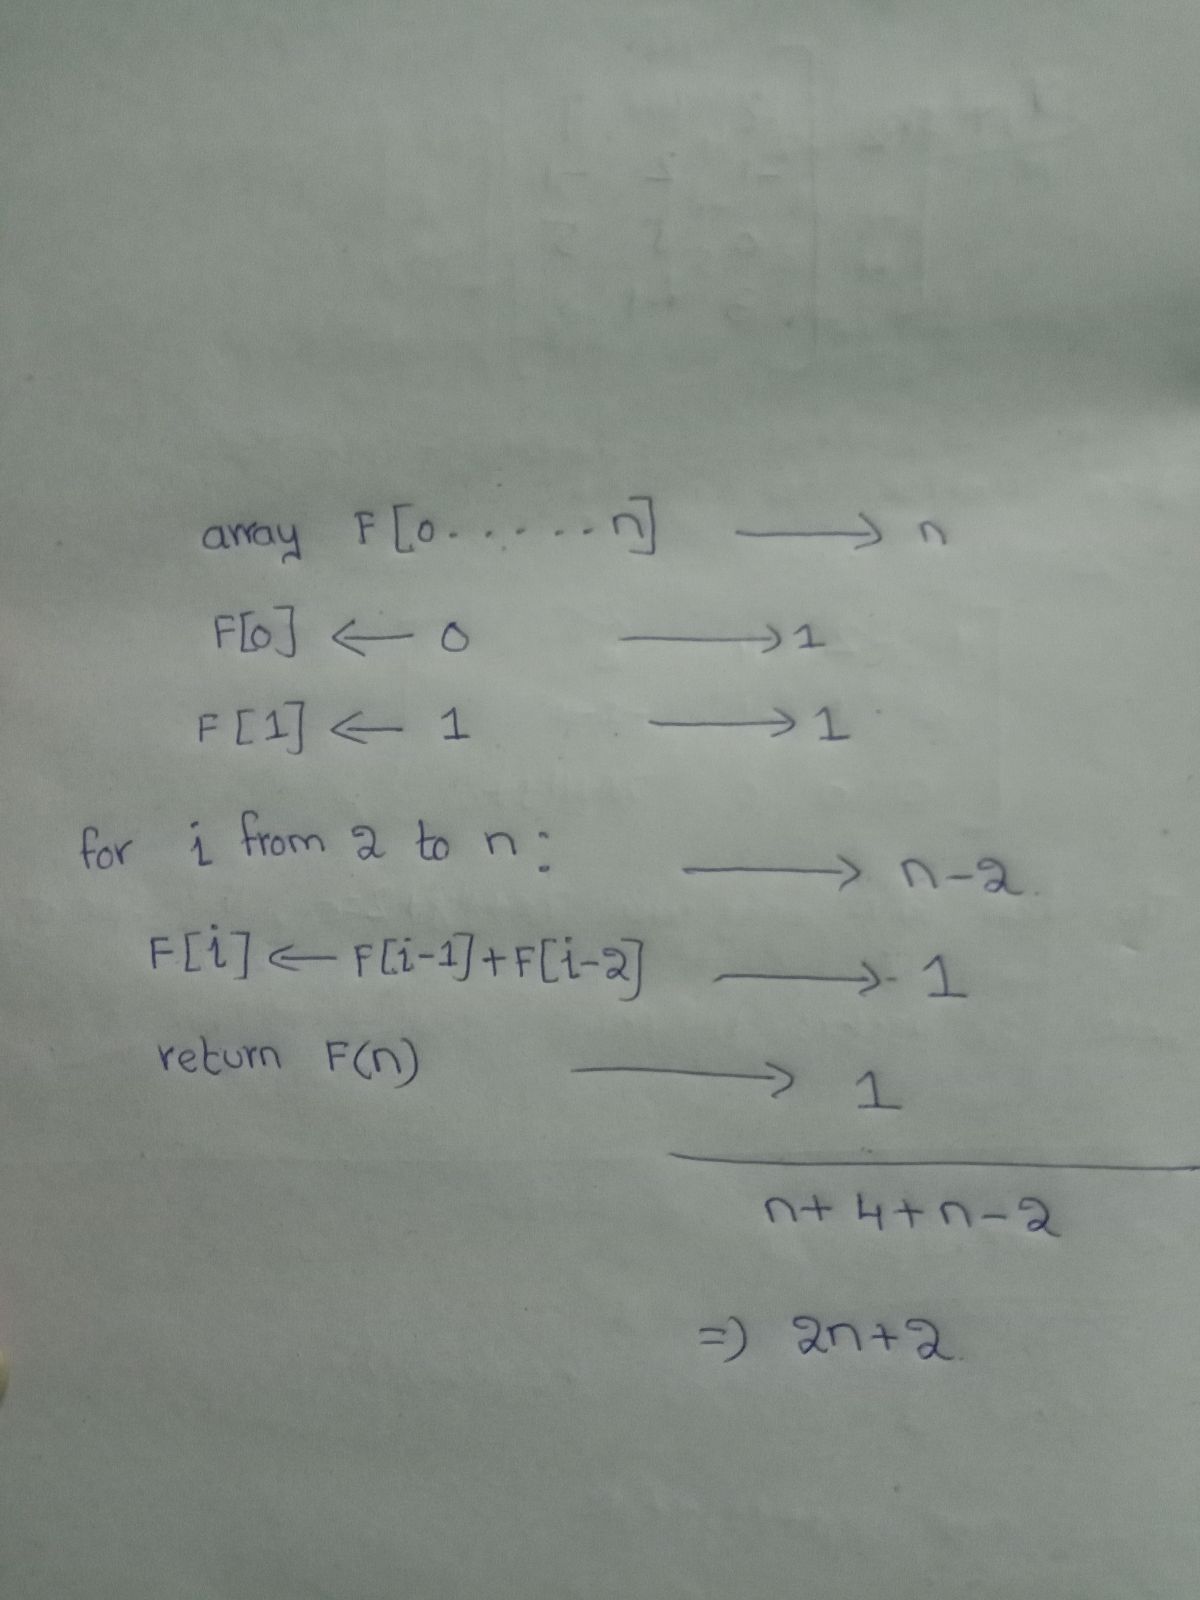 array F[0......n] → n
F[0] ← 0 → 1
F[1] ← 1 → 1
for i from 2 to n: → n-2.
F[i] ← F[i-1]+F[i-2] → 1
return F(n) → 1
n+4+n-2
=) 2n+2.